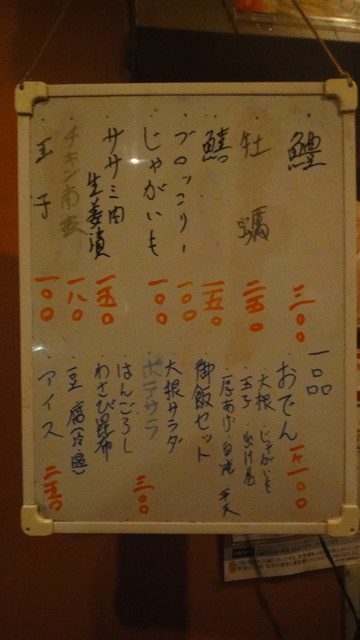 鱧 三〇〇
牡蠣 二五〇
鱚 一五〇
ブロッコリー 一〇〇
じゃがいも 一〇〇
ササミ肉
生姜漬 一五〇
チキン南蛮 一八〇
玉子 一〇〇
一品
おでん 一ケ一〇〇
大根 じゃがいも
玉子
厚あげ 白滝
御飯セット
大根サラダ
ポテサラ 三〇〇
はんごろし
わさび昆布
豆腐(冷温)
アイス 二五〇